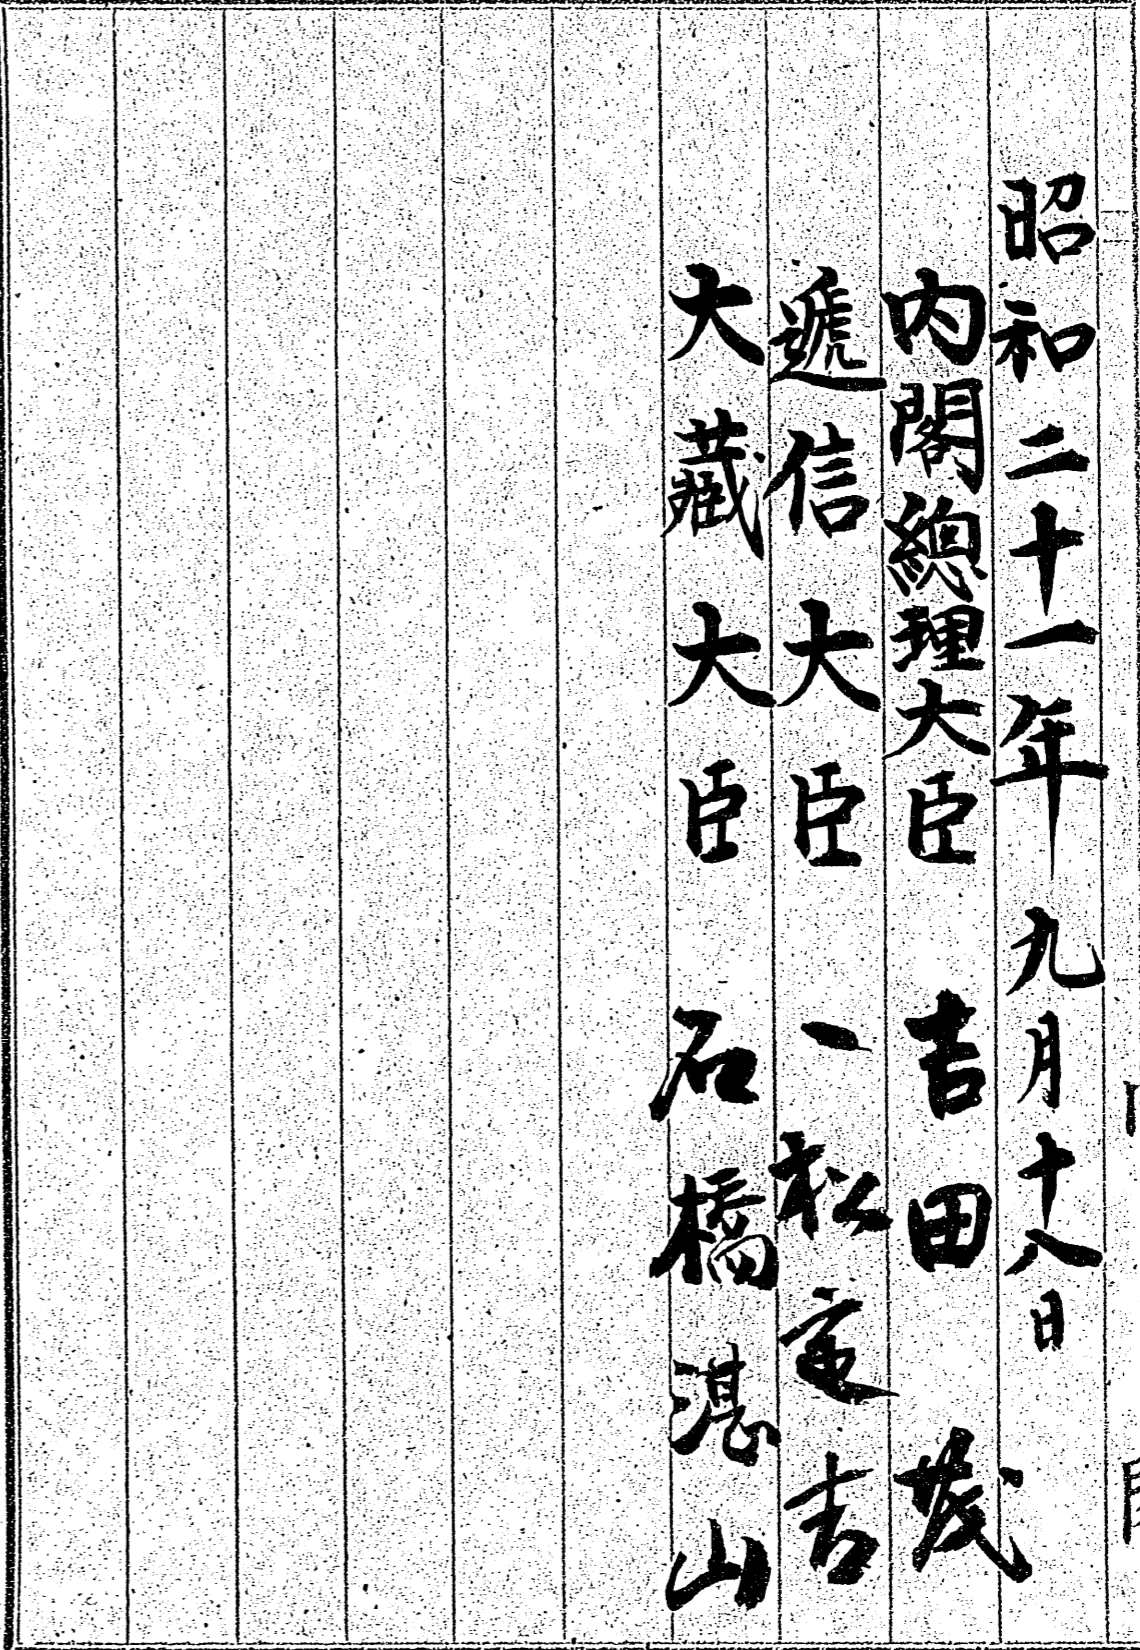 昭和二十一年九月十八日
內閣總理大臣 吉田茂
遞信大臣 一松定吉
大藏大臣 石橋湛山